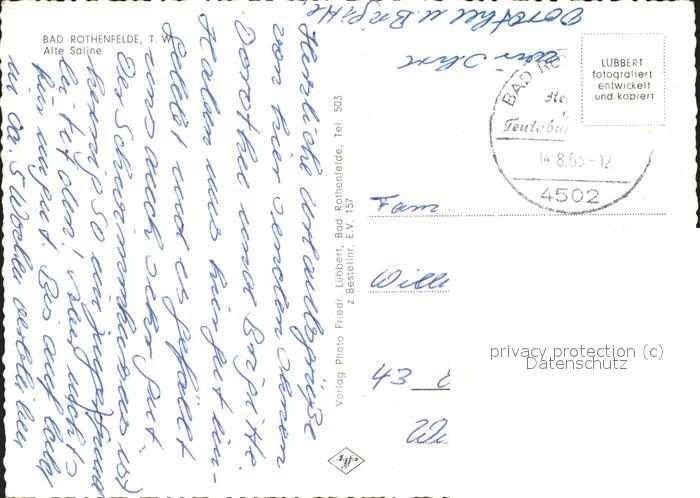 BAD ROTHENFELDE, T. W.
Alte Saline
Herzliche Urlaubsgrüße
von hier senden Ihnen
Dorothee und Brigitte.
Haben uns hier gut ein-
gelebt und es gefällt
uns auch sehr gut
Der Schwimmkursus ist
Bis auf bald
in ca. 5 Wochen verbleiben
Dorothee u. Brigitte
Verlag Photo Friedr. Lübbert, Bad Rothenfelde, Tel. 503
z Bestellnr. E.V. 157
Agfa
LÜBBERT
fotografiert
entwickelt
und kopiert
BAD RO
He
Teutobu
14.8.65-12
4502
Fam.
Will
43
privacy protection (c)
Datenschutz